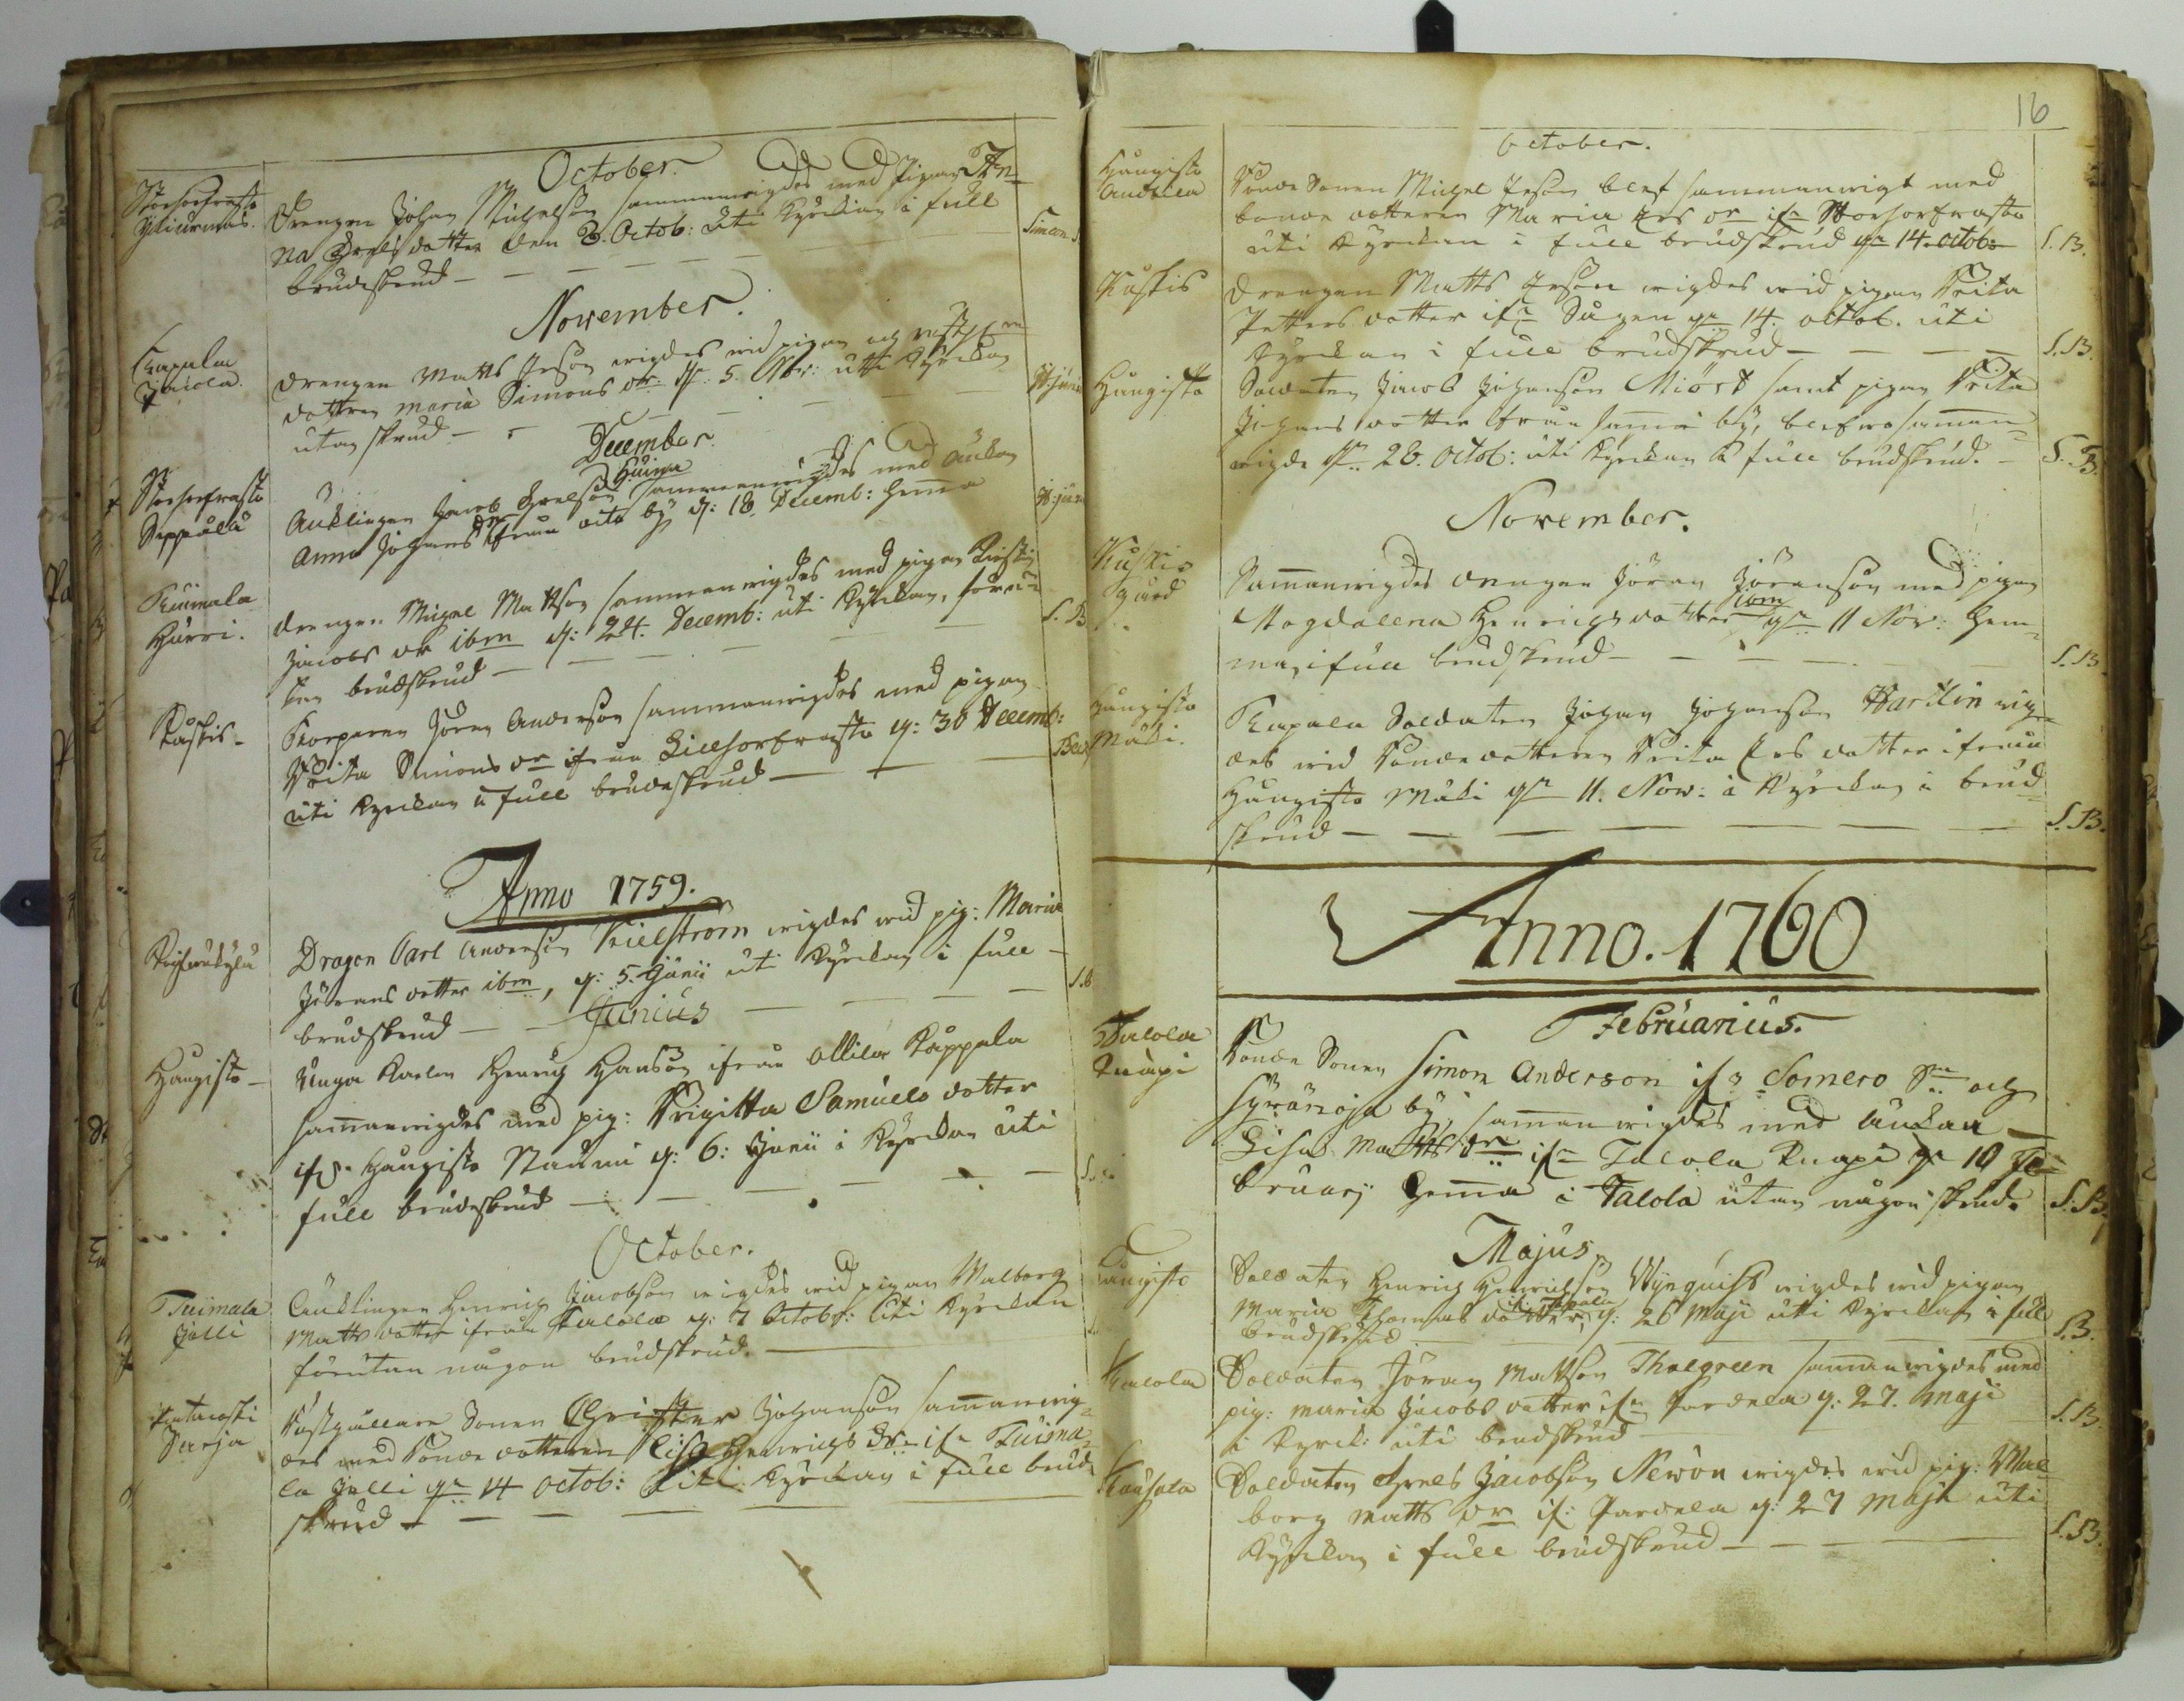 October.
Drengen Johan Michelson sammanwigdes med Pigan An-
na Erels dotter den 8. Octob: uti Kyrckian i full
brudeskrud
Simeon
November.
Kappala
Drengen Matts Erson wigdes wid pigan
dottren Maria Simons dr: d: 5. Nbr: utti Kyrckan
utan skrud
December.
Storhorfrasto
Seppälä
Äncklingen Jacob Erelson sammanwigdes med änckan
Anna Johans dr från dito by d: 18. Decemb: hemma
Kuimala
Hurri.
Drengen Michel Mattson sammanwigdes med pigan
Jacobs dr ibm d: 24. Decemb: uti Kyrckan, förut-
tan brudskrud
S. B
Kuskis
Korporen Jören Anderson sammanwigdes med pigan
Brita Simons dr ifrån Lillhorfrasto d: 30 Decemb:
uti Kyrckan i full brudeskrud
Anno 1759.
Dragon Carl Anderson Kielström wigdes wid pig: Maria
Jörans dotter ibm, d: 5. Junii uti Kyrckan i full
brudskrud
S.B
Junius
Haugisto
Unga Karlen Henrich Hanson ifrån Ollila Kappala
sammanwigdes med pig: Brigitta Samuels dotter
ifr. Haugisto Naumi d: 6: Junii i Kyrckan uti
full brudeskrud
October.
Tuimala
Jälli
Äncklingen Henrich Jacobson wigdes wid pigan Walborg
Matts dotter ifrån Talola d: 7 Octobr: uti Kyrckan
förutan någon brudskrud.
Sarja
Christer Johanson sammanwig-
des med bonde dottren Lisa Henrichs dr ifn Tuima-
la Jälli dn 14 Octob: uti Kyrckan i full brud-
skrud
16
October.
Haugisto
Anttila
Bonde Sonen Michel Erson blef sammanwigt med
bonde dotteren Maria Ers dr ifn Storhorfrasto
uti Kyrckan i full brudskrud dn 14. octob:
S. B.
Kuskis
Drengen Matts Erson wigdes wid pigan Brita
Petters dotter ifn Sugen dn 14. octob. uti
Kyrckan i full brudskrud
S. B.
Haugisto
Soldaten Jacob Johanson Miört samt pigan Brita
Johans dotter från samma by, blefwo samman-
wigde dn 28. Octob: uti Kyrckan i full brudskrud.
S. B.
November.
Kuskis
Gård
Sammanwigdes drengen Jöran Jöranson med pigan
Magdalena Henrichs dotter ibm dn 11 Nov: hem-
ma, i full brudskrud
S. B.
Haugisto
Mäki.
Kapala Soldaten Johan Johanson Hardlin wig-
des wid bonde dotteren Brita Ers dotter ifrån
Haugisto Mäki dn 11. Now: i Kyrckan i brud-
skrud
S. B.
Anno. 1760
Februarius.
Talola
Knapi
Bonde Sonen Simon Anderson ifn Somero Sn och
Sywänoja by, sammanwigdes med änckan
Lisa Matts dr ifn Talola Knapi dn 10 Fe-
bruarij hemma i Talola utan någon skrud.
S. B.
Majus
Haugisto
Soldaten Henrich Henrichson Wynquist wigdes wid pigan
Maria Thomas dotter, d: 26 Maji utti Kyrckan i full
brudskrud
S. B.
Talola
Soldaten Jöran Mattson Thalgreen sammanwigdes med
pig: Maria Jacobs dotter ifn Pardela d: 27. Maji
i Kyrck: uti brudskrud
S. B.
Kaußala
Soldaten Erels Jacobson Newon wigdes wid pig: Wal-
borg Matts dr if: Pardela d: 27 Maji uti
Kyrckan i full brudskrud
S. B.